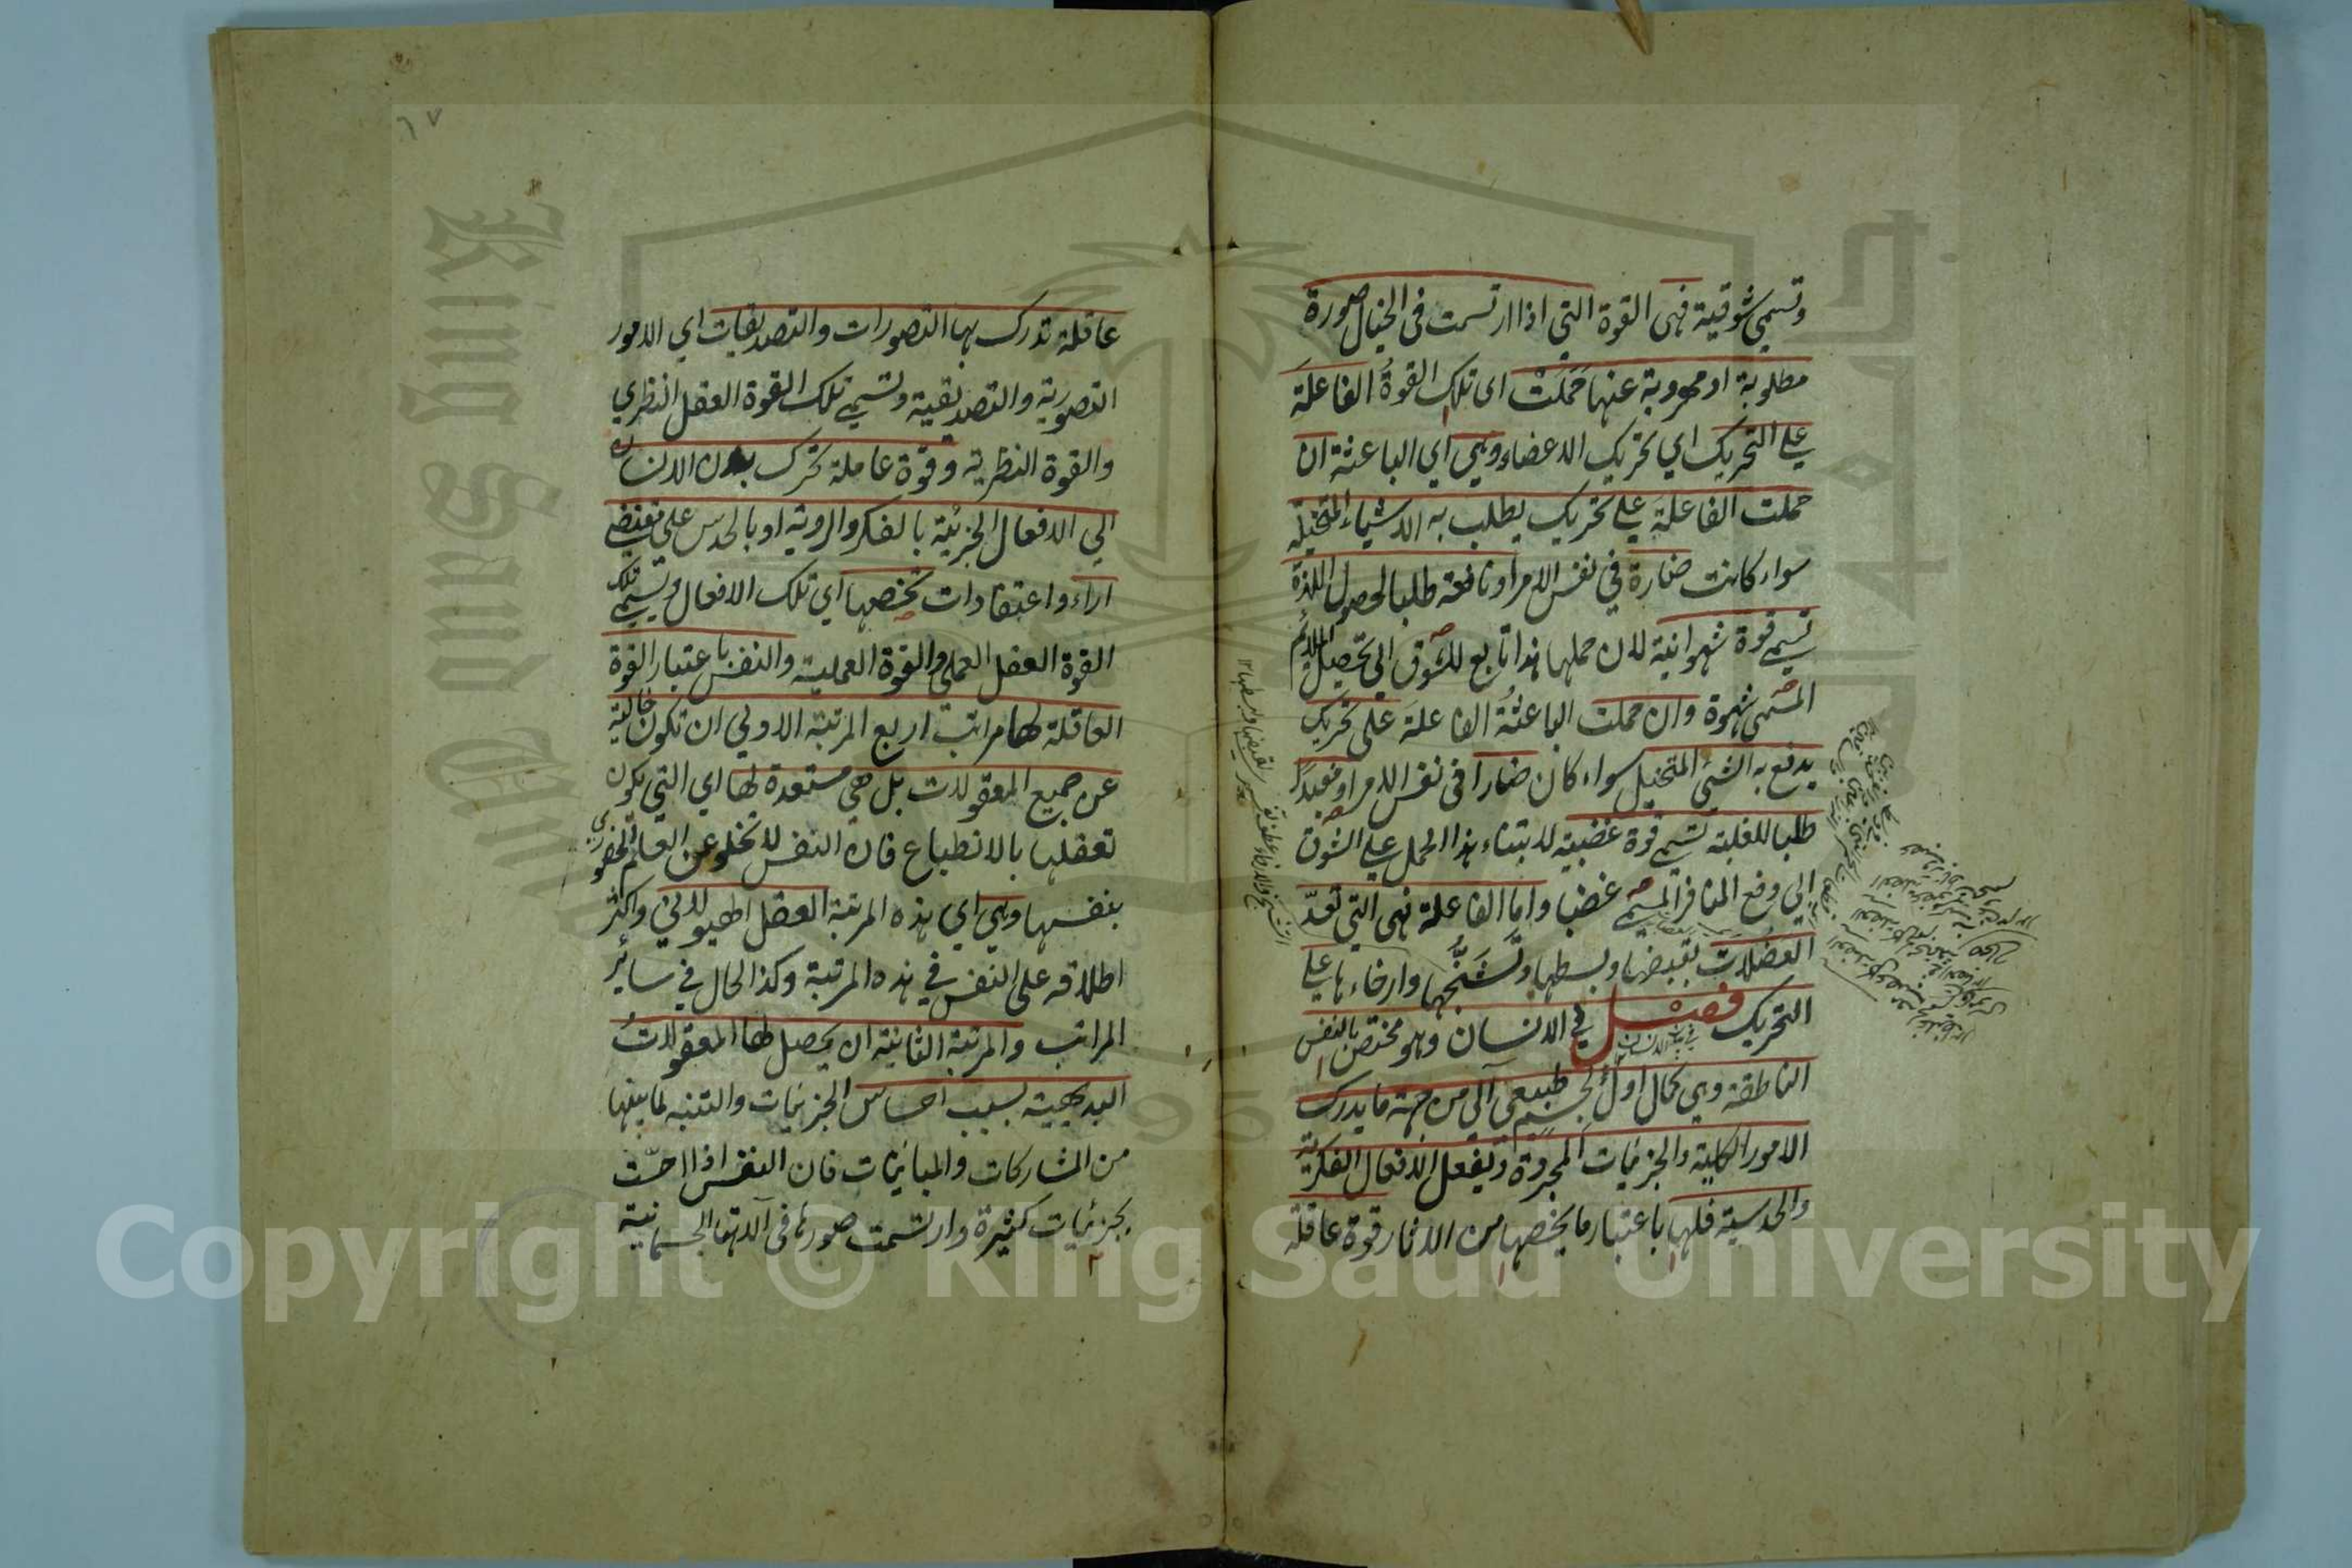 وتسمى شوقية فهى القوة التي اذا ارتسمت فى الخيال صورة
مطلوبة او مهروبة عنها حَمَلَتْ اى تلك القوةُ الفاعلةَ
على التحريك اي تحريك الاعضاء وهي اي الباعثة ان
حملت الفاعلةَ على تحريك يطلب به الاشياء المتخيلة
سواء كانت ضارة في نفس الامر او نافعة طلبا لحصول اللذة
تسمى قوة شهوانية لان حملها هذا تابع للشوق الى تحصيل الملائم
المسمى شهوة وان حملت الباعثةُ الفاعلةَ على تحريك
يدفع به الشئ المتخيل سواء كان ضارا فى نفس الامر او مفيدًا
طلبا للغلبة تسمى قوة غضبية لابتناء هذا الحمل على الشوق
الى دفع المنافر المسمى غضبا واما الفاعلة فهى التي تُعدّ
العضلات بقبضها وبسطها وتَشنُّجها وارخاءها على
التحريك فصل في الانسان وهو مختص بالنفس
الناطقة وهي كمال اول لجسم طبيعي آلى من جهة ما يدرك
الامور الكلية والجزئيات المجردة ويفعل الافعال الفكرية
والحدسية فلها باعتبار ما يخصها من الاثار قوة عاقلة
٦٧
عاقلة تدرك بها التصورات والتصديقات اي الامور
التصورية والتصديقية وتسمى تلك القوة العقل النظري
والقوة النظرية وقوّة عاملة تحرك بدن الانسان
الي الافعال الجزئية بالفكر والروية او بالحدس على مقتضى
اراء واعتقادات تخصها اي تلك الافعال وتسمى تلك
القوة العقل العملى والقوة العملية والنفس باعتبار القوة
العاقلة لها مراتب اربع المرتبة الاولي ان تكون خالية
عن جميع المعقولات بل هي مستعدة لها اي التي يكون
تعقلها بالانطباع فان النفس لا تخلو عن العلم الحضوري
بنفسها وهي اي هذه المرتبة العقل الهيولاني واكثر
اطلاقه على النفس في هذه المرتبة وكذا الحال في سائر
المراتب والمرتبة الثانية ان يحصل لها المعقولاتُ
البديهية بسبب احساس الجزئيات والتنبه لما بينها
من المشاركات والمباينات فان النفس اذا احسّت
بجزئيات كثيرة وارتسمت صورها فى آلاتها الجسمانية
Copyright © King Saud University